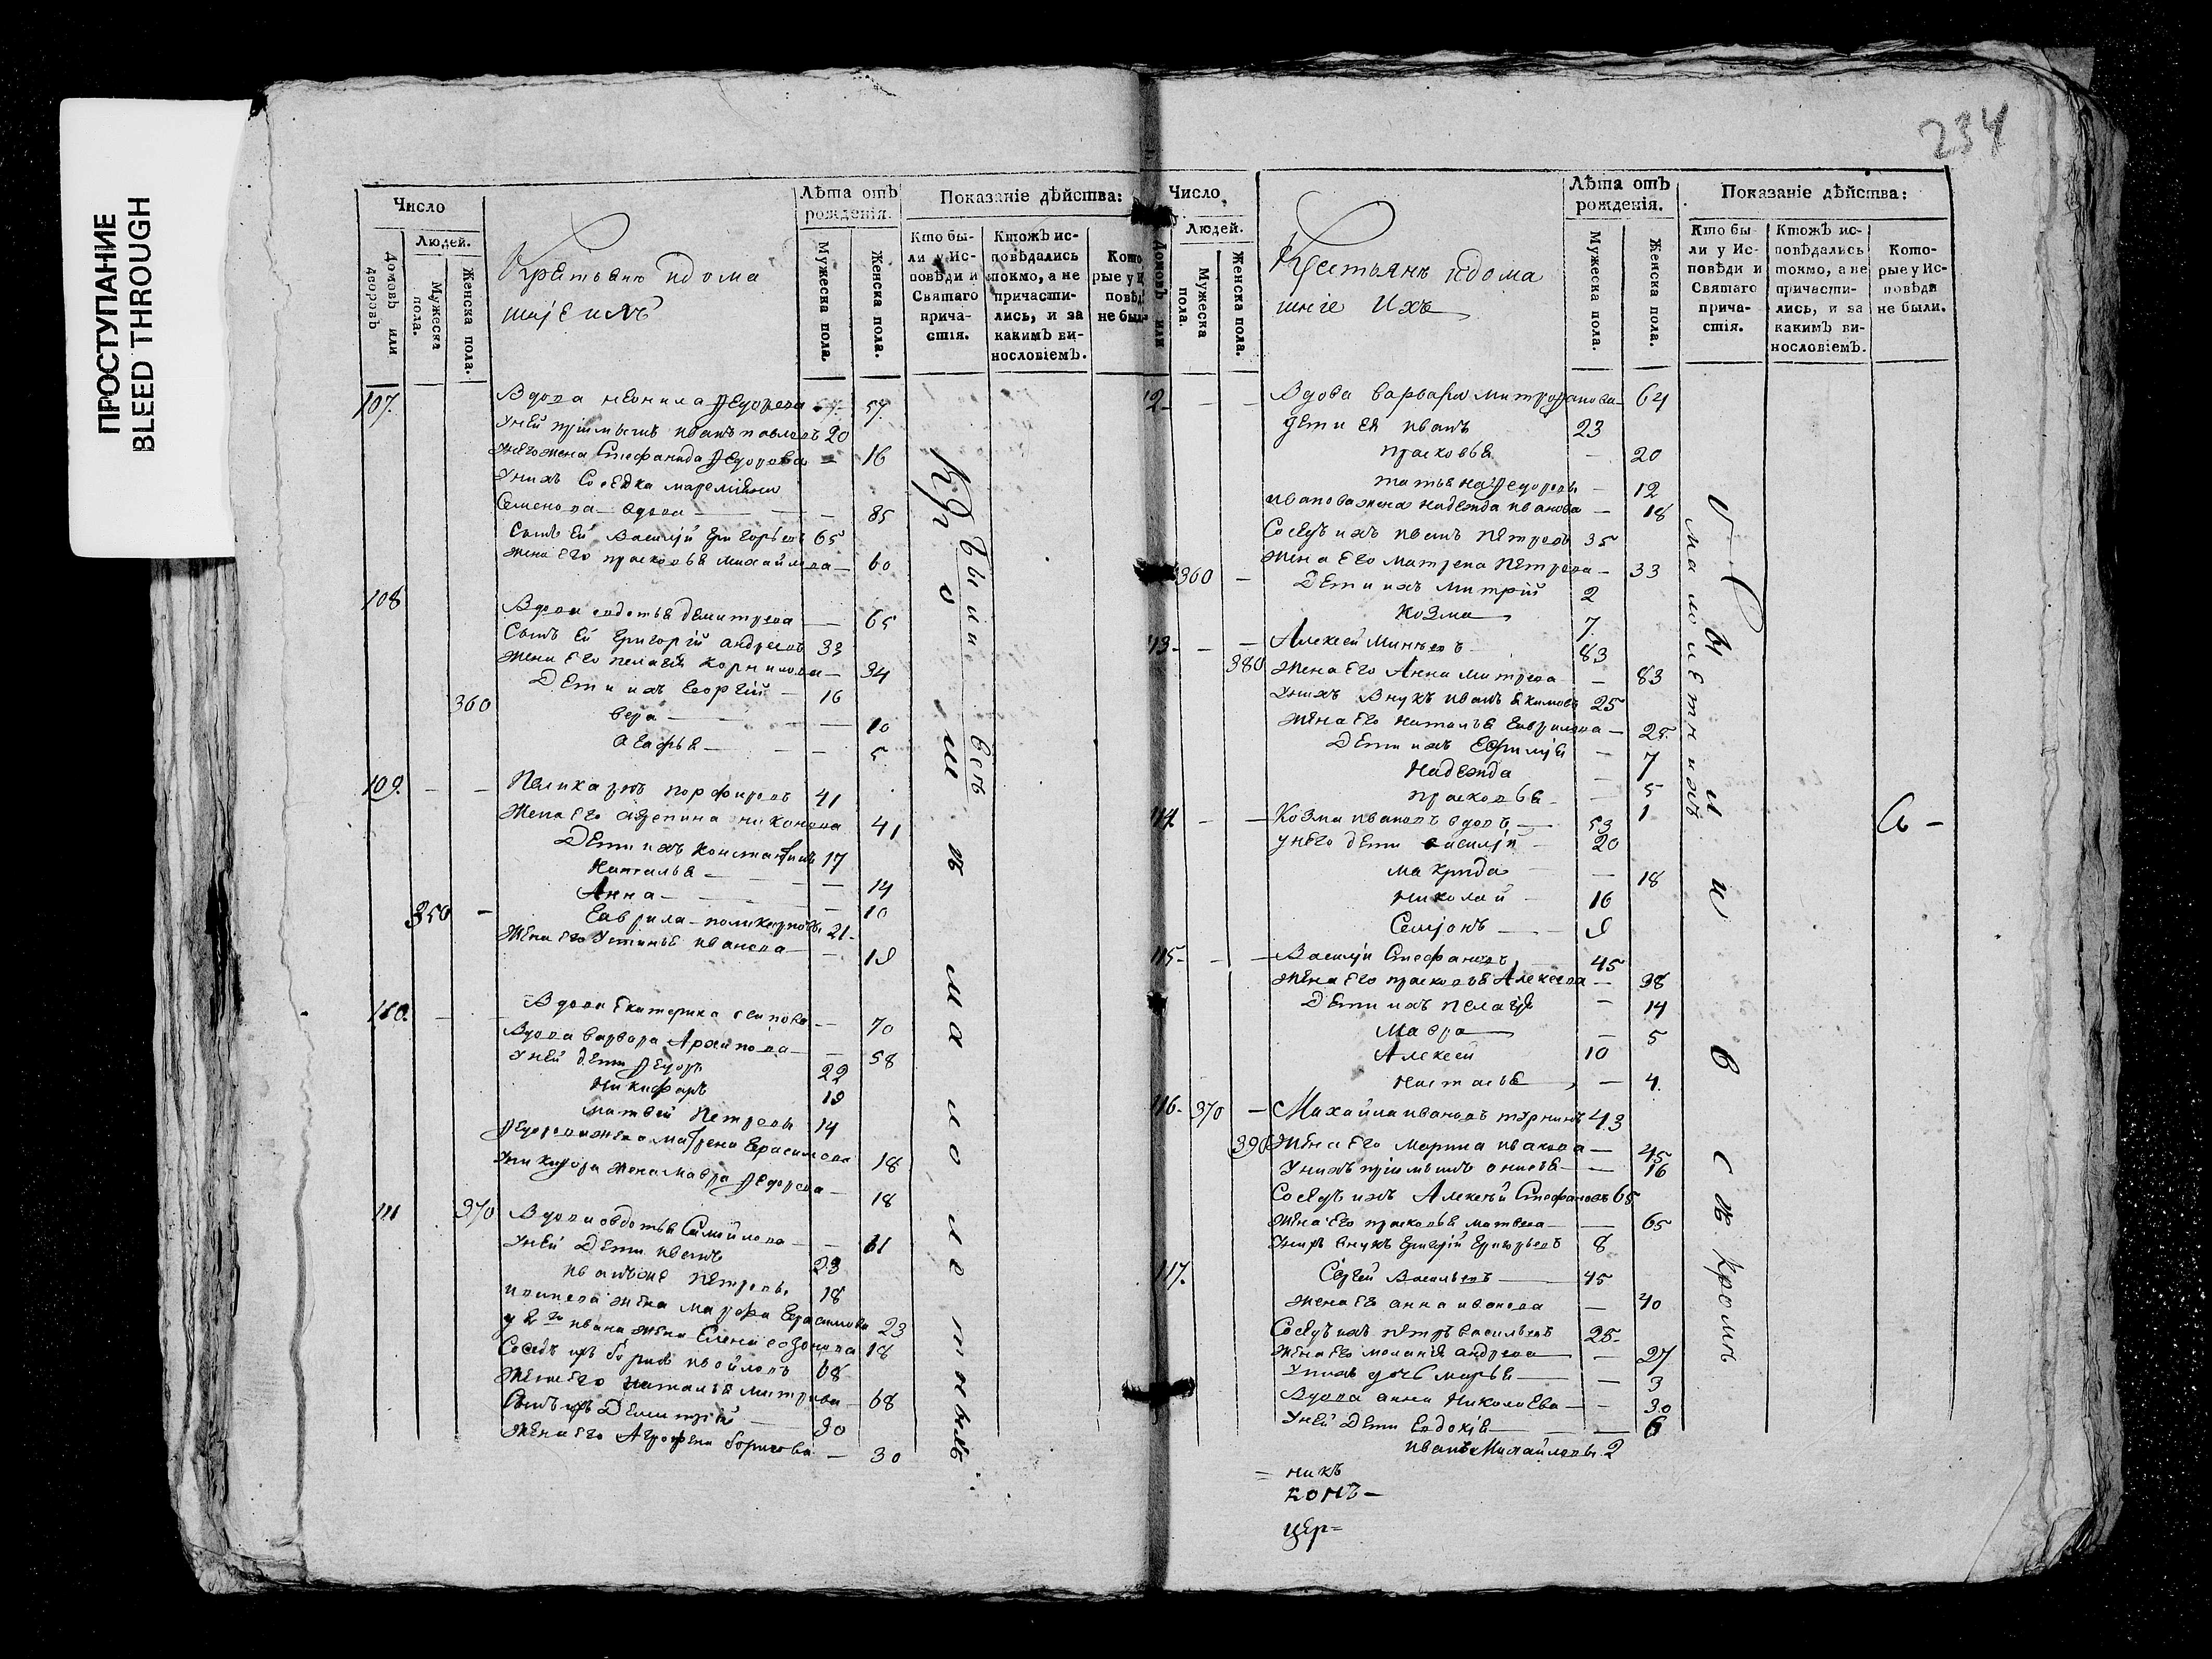 ПРОСТУПАНИЕ
BLEED THROUGH
234
Число
Людей.
Домовъ или дворовъ
Мужеска пола.
Женска пола.
Крестьяне идома
шніе ихъ
Лѣта отъ рожденія.
Мужеска пола.
Женска пола.
Показаніе дѣйства:
Кто бы-
ли у Ис-
повѣди и
Святаго
прича-
стія.
Ктожъ ис-
повѣдались
токмо, а не
причасти-
лись, и за
какимъ ви-
нословіемъ.
Кото
рые у И
повѣд
не был
107. Вдова неонила Федорова 57.
Уней приімышъ иванъ павловъ 20
Унего жена Стефанида Федорова 16
Унихъ Соседка
Семенова вдова 85
Сынъ Ей Василій Григорьевъ 65
жена Его прасковья михайлова 60
108 Вдова евдотья дмитрева 65
Сынъ Ей Григорій андреевъ 33
жена Его пелагея корнилова 34
Дети ихъ Георгій 16
360 вера 10
Агафья 5
109. Поликарпъ порфировъ 41
жена Его никонова 41
Дети ихъ константинъ 17
Наталья 14
Анна 10
350 Гаврила поликарповъ 21
жена Его Устинья иванова 19
110. Вдова Екатерина осипова 70
Вдова варвара Архипова 58
Уней дети Федоръ 22
Никифоръ 19
матвей Петровы 14
Федорова жена матрена Герасимова 18
Уникифора жена мавра Федорова 18
111 370 Вдова овдотья Самойлова 61
Уней Дети иванъ 23
иванъже Петровы 18
иванова жена марфа Герасимова 23
у 2го ивана жена Елена созонова 18
Соседъ ихъ борисъ 68
жена Его наталья митрева 68
Сынъ ихъ Дмитрій 30
жена Его Агрофена борисова 30
Кромѣ малолетныхъ
были всѣ
Число
Людей.
Домовъ или
Мужеска пола.
Женска пола.
Крестьяне идома
шніе ихъ
Лѣта отъ рожденія.
Мужеска пола.
Женска пола.
Показаніе дѣйства:
Кто бы-
ли у Ис-
повѣди и
Святаго
прича-
стія.
Ктожъ ис-
повѣдались
токмо, а не
причасти-
лись, и за
какимъ ви-
нословіемъ.
Кото-
рые у Ис-
повѣди
не были.
12. Вдова варвара митрофанова 64
дети ея иванъ 23
прасковья 20
татьяна Федоровы 12
иванова жена надежда иванова 18
Соседъ ихъ иванъ петровъ 35
360 жена Его матрена петрова 33
Дети ихъ митрій 2
козма 7.
113. Алексей 83
380 жена Его Анна митрева 83
Унихъ внукъ иванъ екимовъ 25
жена Его наталья гаврилова 25
Дети ихъ 7
надежда 5
прасковья 1
114. Козма ивановъ вдовъ 53
унего дети василій 20
макрида 18
николай 16
Семіонъ 9
115. Василій Стефановъ 45
жена Его прасковья Алексева 38
Дети ихъ пелагея 14
мавра 5
Алексей 10
настасья 4
116. 370 Михайла ивановъ 43
390 жена Его марина иванова 45
Унихъ приімышъ онисья 16
Соседъ ихъ Алексей Стефановъ 65
жена Его прасковья матвева 65
Унихъ внукъ Григорій Григорьевъ 8
117. Сергей Васильевъ 45
жена Его анна иванова 40
Соседъ ихъ петръ васильевъ 25
жена Его меланія андрева 27
Унихъ дочь марья 3
Вдова анна Николаева 30
Уней Дети Евдокія 6
иванъ Михайловы 2
были все кромѣ
малолетнихъ
никъ
конъ
цер=